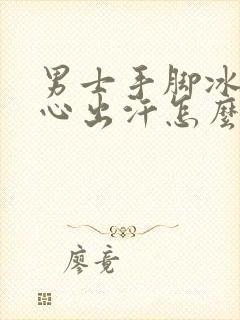 男士手脚冰
心出汗怎麽
廖竟